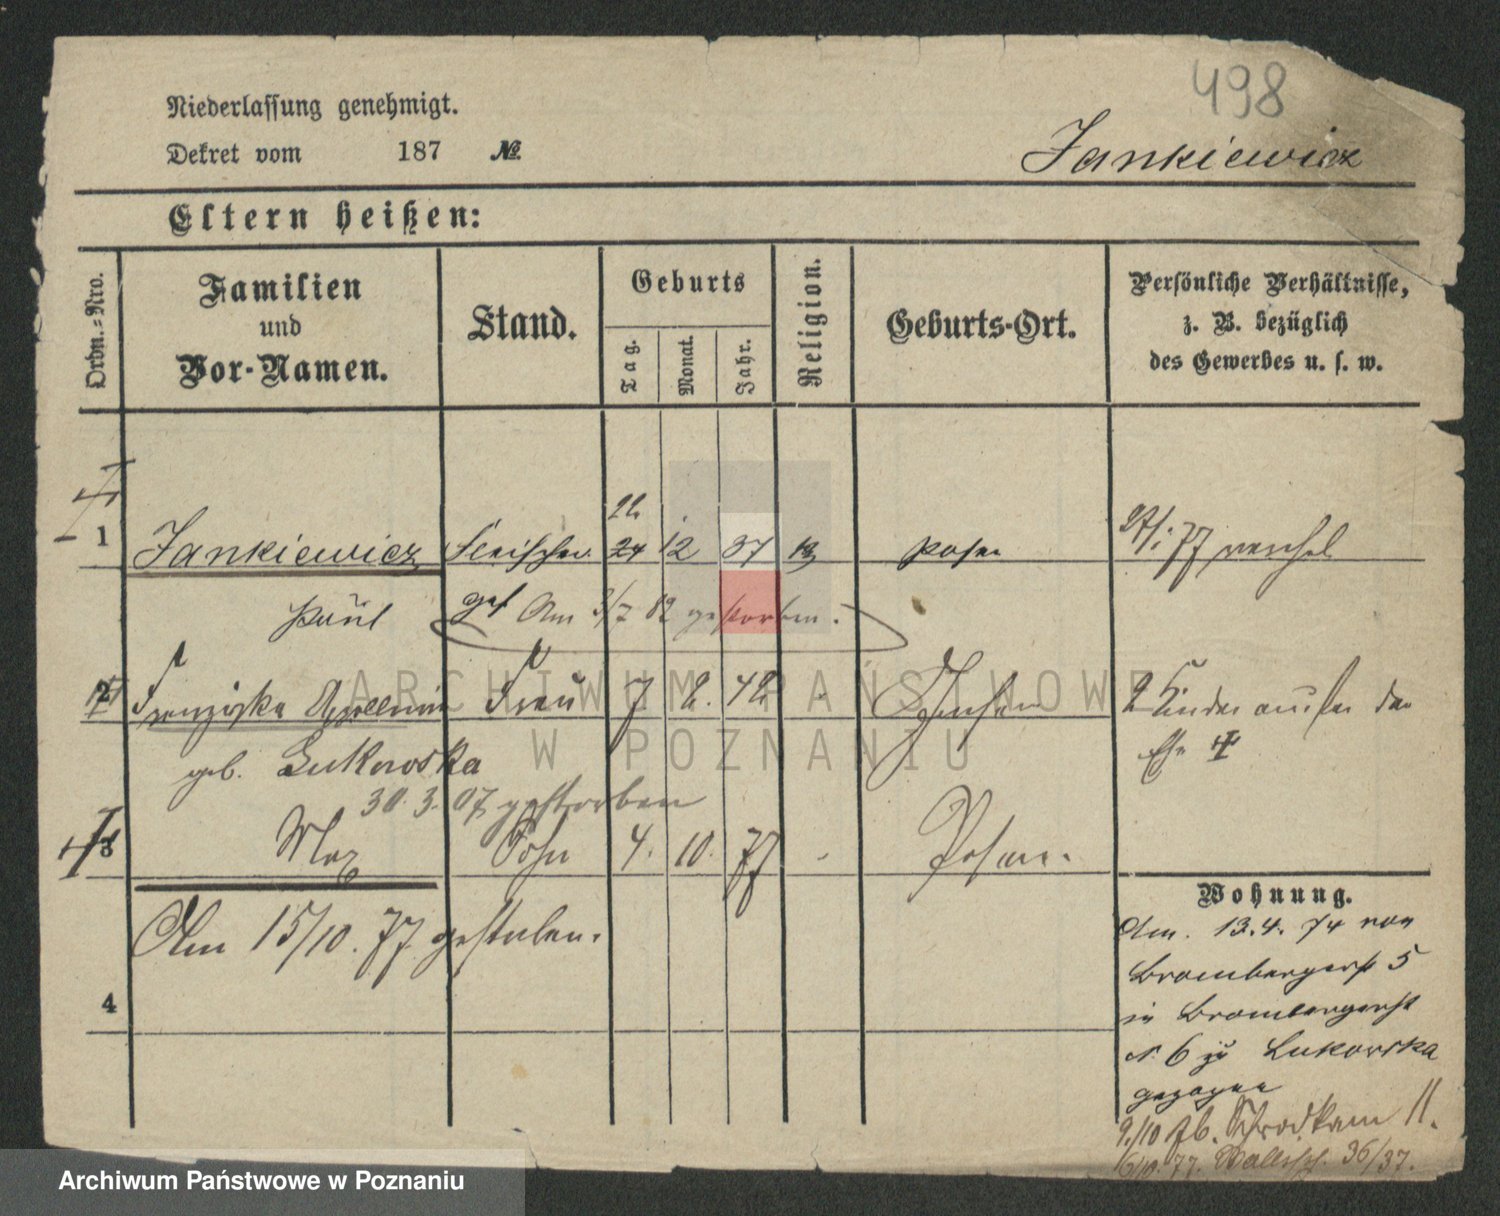 498
Niederlassung genehmigt.
Dekret vom 187 №
Jankiewicz
Eltern heißen:
Ordn.=Nro.
Familien
und
Vor-Namen.
Stand.
Geburts
Tag.
Monat.
Jahr.
Religion.
Geburts-Ort.
Persönliche Verhältnisse,
z. B. bezüglich
des Gewerbes u. s. w.
1 Jankiewicz Fleischer 24 12 37 Posen
Paul Am 3/7 82 gestorben.
2 Franziska Frau 7 2. 42 2 Kinder außer der
geb. Lukowska Ehe
30. 3. 07 gestorben
3 Max Sohn 4. 10. 77 Posen.
Am 15/10. 77 gestorben.
4
Wohnung.
Am. 13. 4. 74 von
Brombergerst 5
in Brombergerst
N. 6 zu Lukowska
gezogen
9./10 76. Schrodkam 11.
6/10. 77. Wallisch. 36/37.
ARCHIWUM PAŃSTWOWE
W POZNANIU
Archiwum Państwowe w Poznaniu